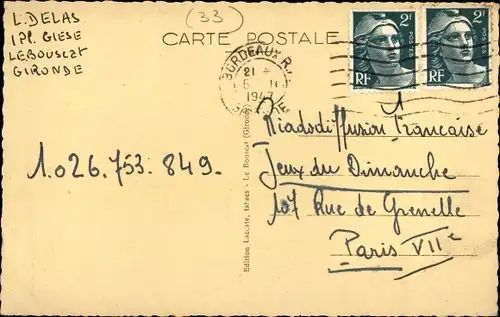 L. DELAS
1 Pl. GIESE
LE BOUSCAT
GIRONDE
(33)
CARTE POSTALE
BORDEAUX R.P.
21
6 - 11
1947
GIRONDE
2F
POSTES
RF
2F
POSTES
RF
1.026.753.849.
Edition Lacoste, tabacs - Le Bouscat (Gironde)
Riadodiffusion Francaise
Jeux du Dimanche
107 Rue de Grenelle
Paris VIIe